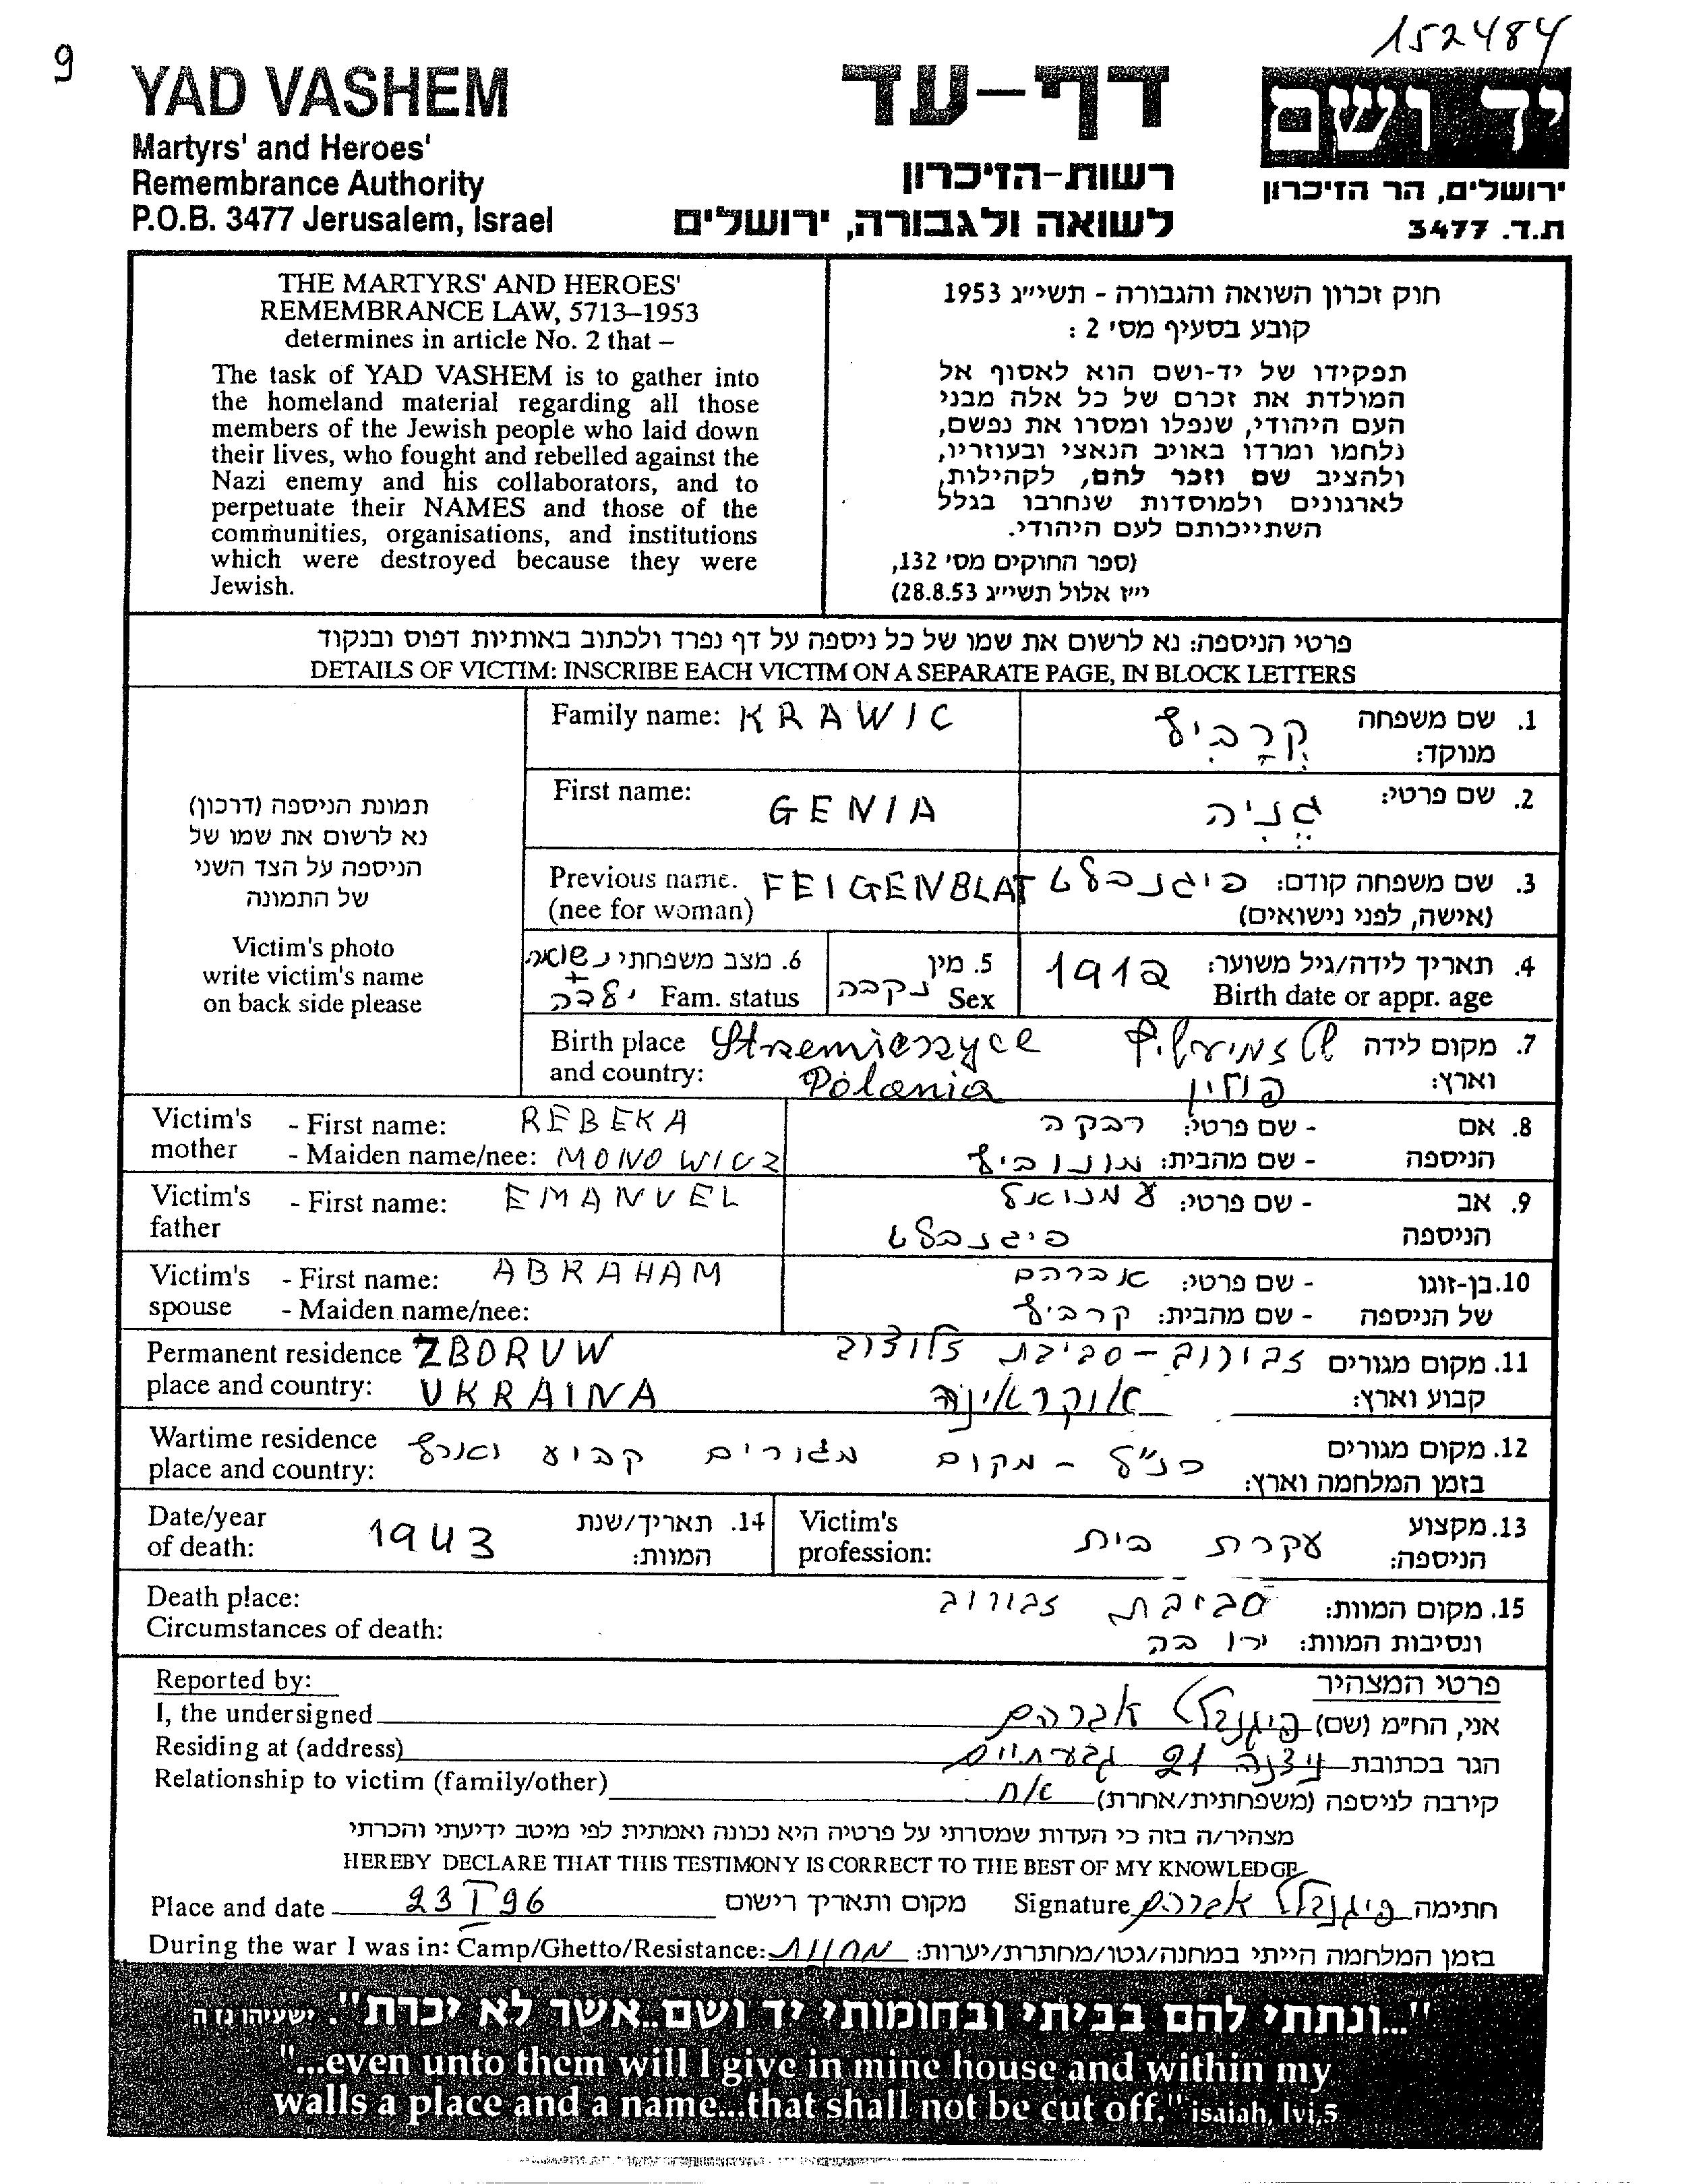 152484
9
YAD VASHEM
Martyrs' and Heroes'
Remembrance Authority
P.O.B. 3477 Jerusalem, Israel
דף-עד
רשות-הזיכרון
לשואה ולגבורה, ירושלים
יד ושם
ירושלים, הר הזיכרון
ת.ד. 3477
THE MARTYRS' AND HEROES'
REMEMBRANCE LAW, 5713–1953
determines in article No. 2 that –
The task of YAD VASHEM is to gather into
the homeland material regarding all those
members of the Jewish people who laid down
their lives, who fought and rebelled against the
Nazi enemy and his collaborators, and to
perpetuate their NAMES and those of the
communities, organisations, and institutions
which were destroyed because they were
Jewish.
חוק זכרון השואה והגבורה - תשי״ג 1953
קובע בסעיף מס׳ 2 :
תפקידו של יד-ושם הוא לאסוף אל
המולדת את זכרם של כל אלה מבני
העם היהודי, שנפלו ומסרו את נפשם,
נלחמו ומרדו באויב הנאצי ובעוזריו,
ולהציב שם וזכר להם, לקהילות,
לארגונים ולמוסדות שנחרבו בגלל
השתייכותם לעם היהודי.
(ספר החוקים מס׳ 132,
י״ז אלול תשי״ג 28.8.53)
פרטי הניספה: נא לרשום את שמו של כל ניספה על דף נפרד ולכתוב באותיות דפוס ובנקוד
DETAILS OF VICTIM: INSCRIBE EACH VICTIM ON A SEPARATE PAGE, IN BLOCK LETTERS
תמונת הניספה (דרכון)
נא לרשום את שמו של
הניספה על הצד השני
של התמונה
Victim's photo
write victim's name
on back side please
Family name: KRAWIC
1. שם משפחה קרביץ
מנוקד:
First name: GENIA
2. שם פרטי: גניה
Previous name. FEIGENBLAT
(nee for woman)
3. שם משפחה קודם: פיגנבלט
(אישה, לפני נישואים)
4. תאריך לידה/גיל משוער: 1912
Birth date or appr. age
5. מין נקבה
Sex
6. מצב משפחתי נשואה
Fam. status + ילדה
Birth place Strzemieszyce
and country: Polania
7. מקום לידה
וארץ: פולין
Victim's - First name: REBEKA
mother - Maiden name/nee: MONOWICZ
8. אם - שם פרטי: רבקה
הניספה - שם מהבית: מונוביץ
Victim's - First name: EMANUEL
father
9. אב - שם פרטי: עמנואל
הניספה פיגנבלט
Victim's - First name: ABRAHAM
spouse - Maiden name/nee:
10. בן-זוגו - שם פרטי: אברהם
של הניספה - שם מהבית: קרביץ
Permanent residence ZBORUW
place and country: UKRAINA
11. מקום מגורים זבורוב - סביבת זלוצוב
קבוע וארץ: אוקראינה
Wartime residence
place and country:
12. מקום מגורים כנ״ל - מקום מגורים קבוע וארץ
בזמן המלחמה וארץ:
Date/year
of death: 1943
14. תאריך/שנת
המוות:
Victim's
profession:
13. מקצוע עקרת בית
הניספה:
Death place:
Circumstances of death:
15. מקום המוות: סביבת זבורוב
ונסיבות המוות: ירו בה
Reported by:
I, the undersigned
Residing at (address)
Relationship to victim (family/other)
פרטי המצהיר
אני, הח״מ (שם) פיגנבלט אברהם
הגר בכתובת ניצנה 21 גבעתיים
קירבה לניספה (משפחתית/אחרת) אח
מצהיר/ה בזה כי העדות שמסרתי על פרטיה היא נכונה ואמתית לפי מיטב ידיעתי והכרתי
HEREBY DECLARE THAT THIS TESTIMONY IS CORRECT TO THE BEST OF MY KNOWLEDGE
Place and date 23 I 96 מקום ותאריך רישום
Signature פיגנבלט אברהם חתימה
During the war I was in: Camp/Ghetto/Resistance: מחנות בזמן המלחמה הייתי במחנה/גטו/מחתרת/יערות:
"...ונתתי להם בביתי ובחומותי יד ושם..אשר לא יכרת". ישעיהו נו ה
"...even unto them will I give in mine house and within my
walls a place and a name...that shall not be cut off." isaiah, lvi,5